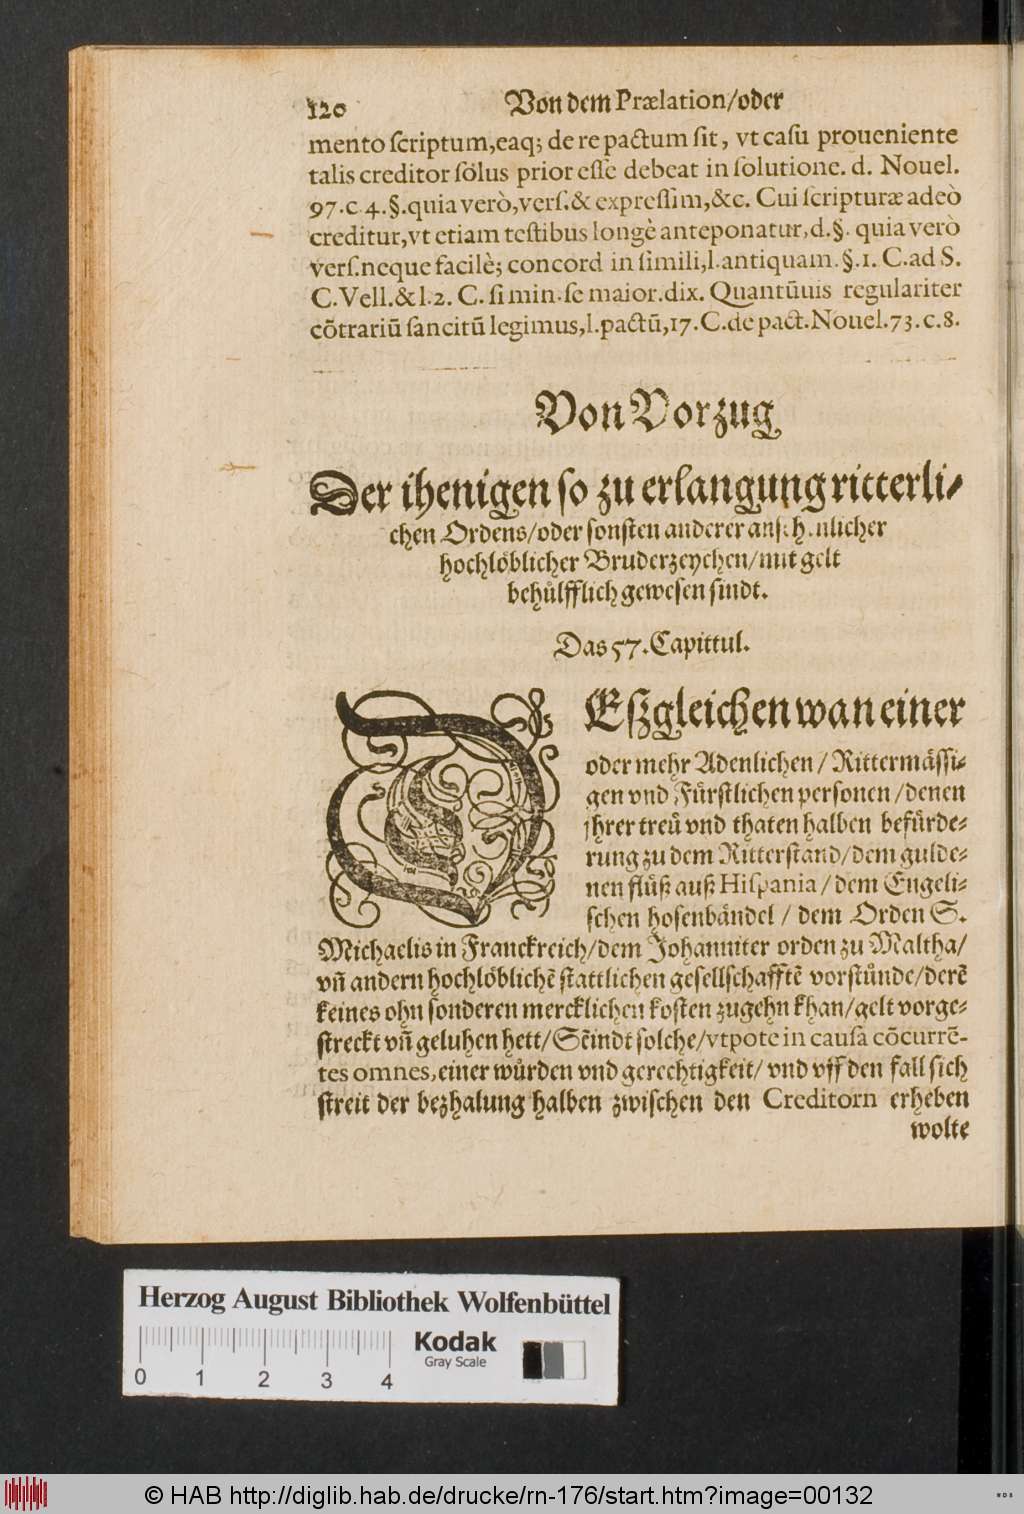 120 Von dem Prælation/oder
mento scriptum,eaq; de re pactum sit, vt casu proueniente
talis creditor sòlus prior esse debeat in solutione. d. Nouel.
97.c.4.§.quia verò,vers.& expressim,&c. Cui scripturæ adeò
creditur,vt etiam testibus longè anteponatur,d.§. quia verò
vers.neque facilè; concord in simili,l.antiquam.§.1. C.ad S.
C.Vell.&l.2. C. si min.se maior.dix. Quantūuis regulariter
cōtrariū sancitū legimus,l.pactū,17.C.de pact.Nouel.73.c.8.
Von Vorzug
Der ihenigen so zu erlangung ritterli-
chen Ordens/oder sonsten anderer ansehenlicher
hochlöblicher Bruderzeychen/mit gelt
behülfflich gewesen sindt.
Das 57.Capittul.
DEßgleichen wan einer
oder mehr Adenlichen / Rittermässi-
gen vnd Fürstlichen personen /denen
jhrer treü vnd thaten halben befürde-
rung zu dem Ritterstand/dem gulde-
nen flüß auß Hispania /dem Engeli-
schen hosenbändel / dem Orden S.
Michaelis in Franckreich/dem Johanniter orden zu Maltha/
vn̄ andern hochlöblichē stattlichen gesellschafftē vorstünde/derē
keines ohn sonderen mercklichen kosten zugehn khan/gelt vorge-
streckt vn̄ geluhen hett/Sēindt solche/vtpote in causa cōcurrē-
tes omnes,einer würden vnd gerechtigkeit/ vnd vff den fall sich
streit der bezhalung halben zwischen den Creditorn erheben
wolte
Herzog August Bibliothek Wolfenbüttel
Kodak
Gray Scale
0 1 2 3 4
© HAB http://diglib.hab.de/drucke/rn-176/start.htm?image=00132